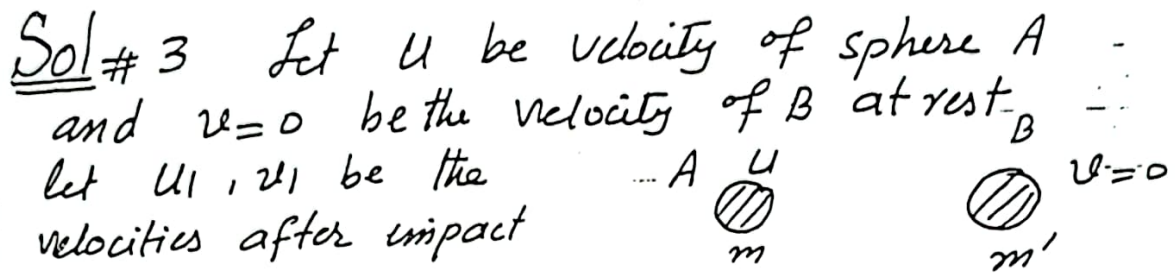 Sol # 3 Let u be velocity of sphere A
and v=0 be the velocity of B at rest
let u1, v1 be the
velocities after impact
A u B v=0
m m'